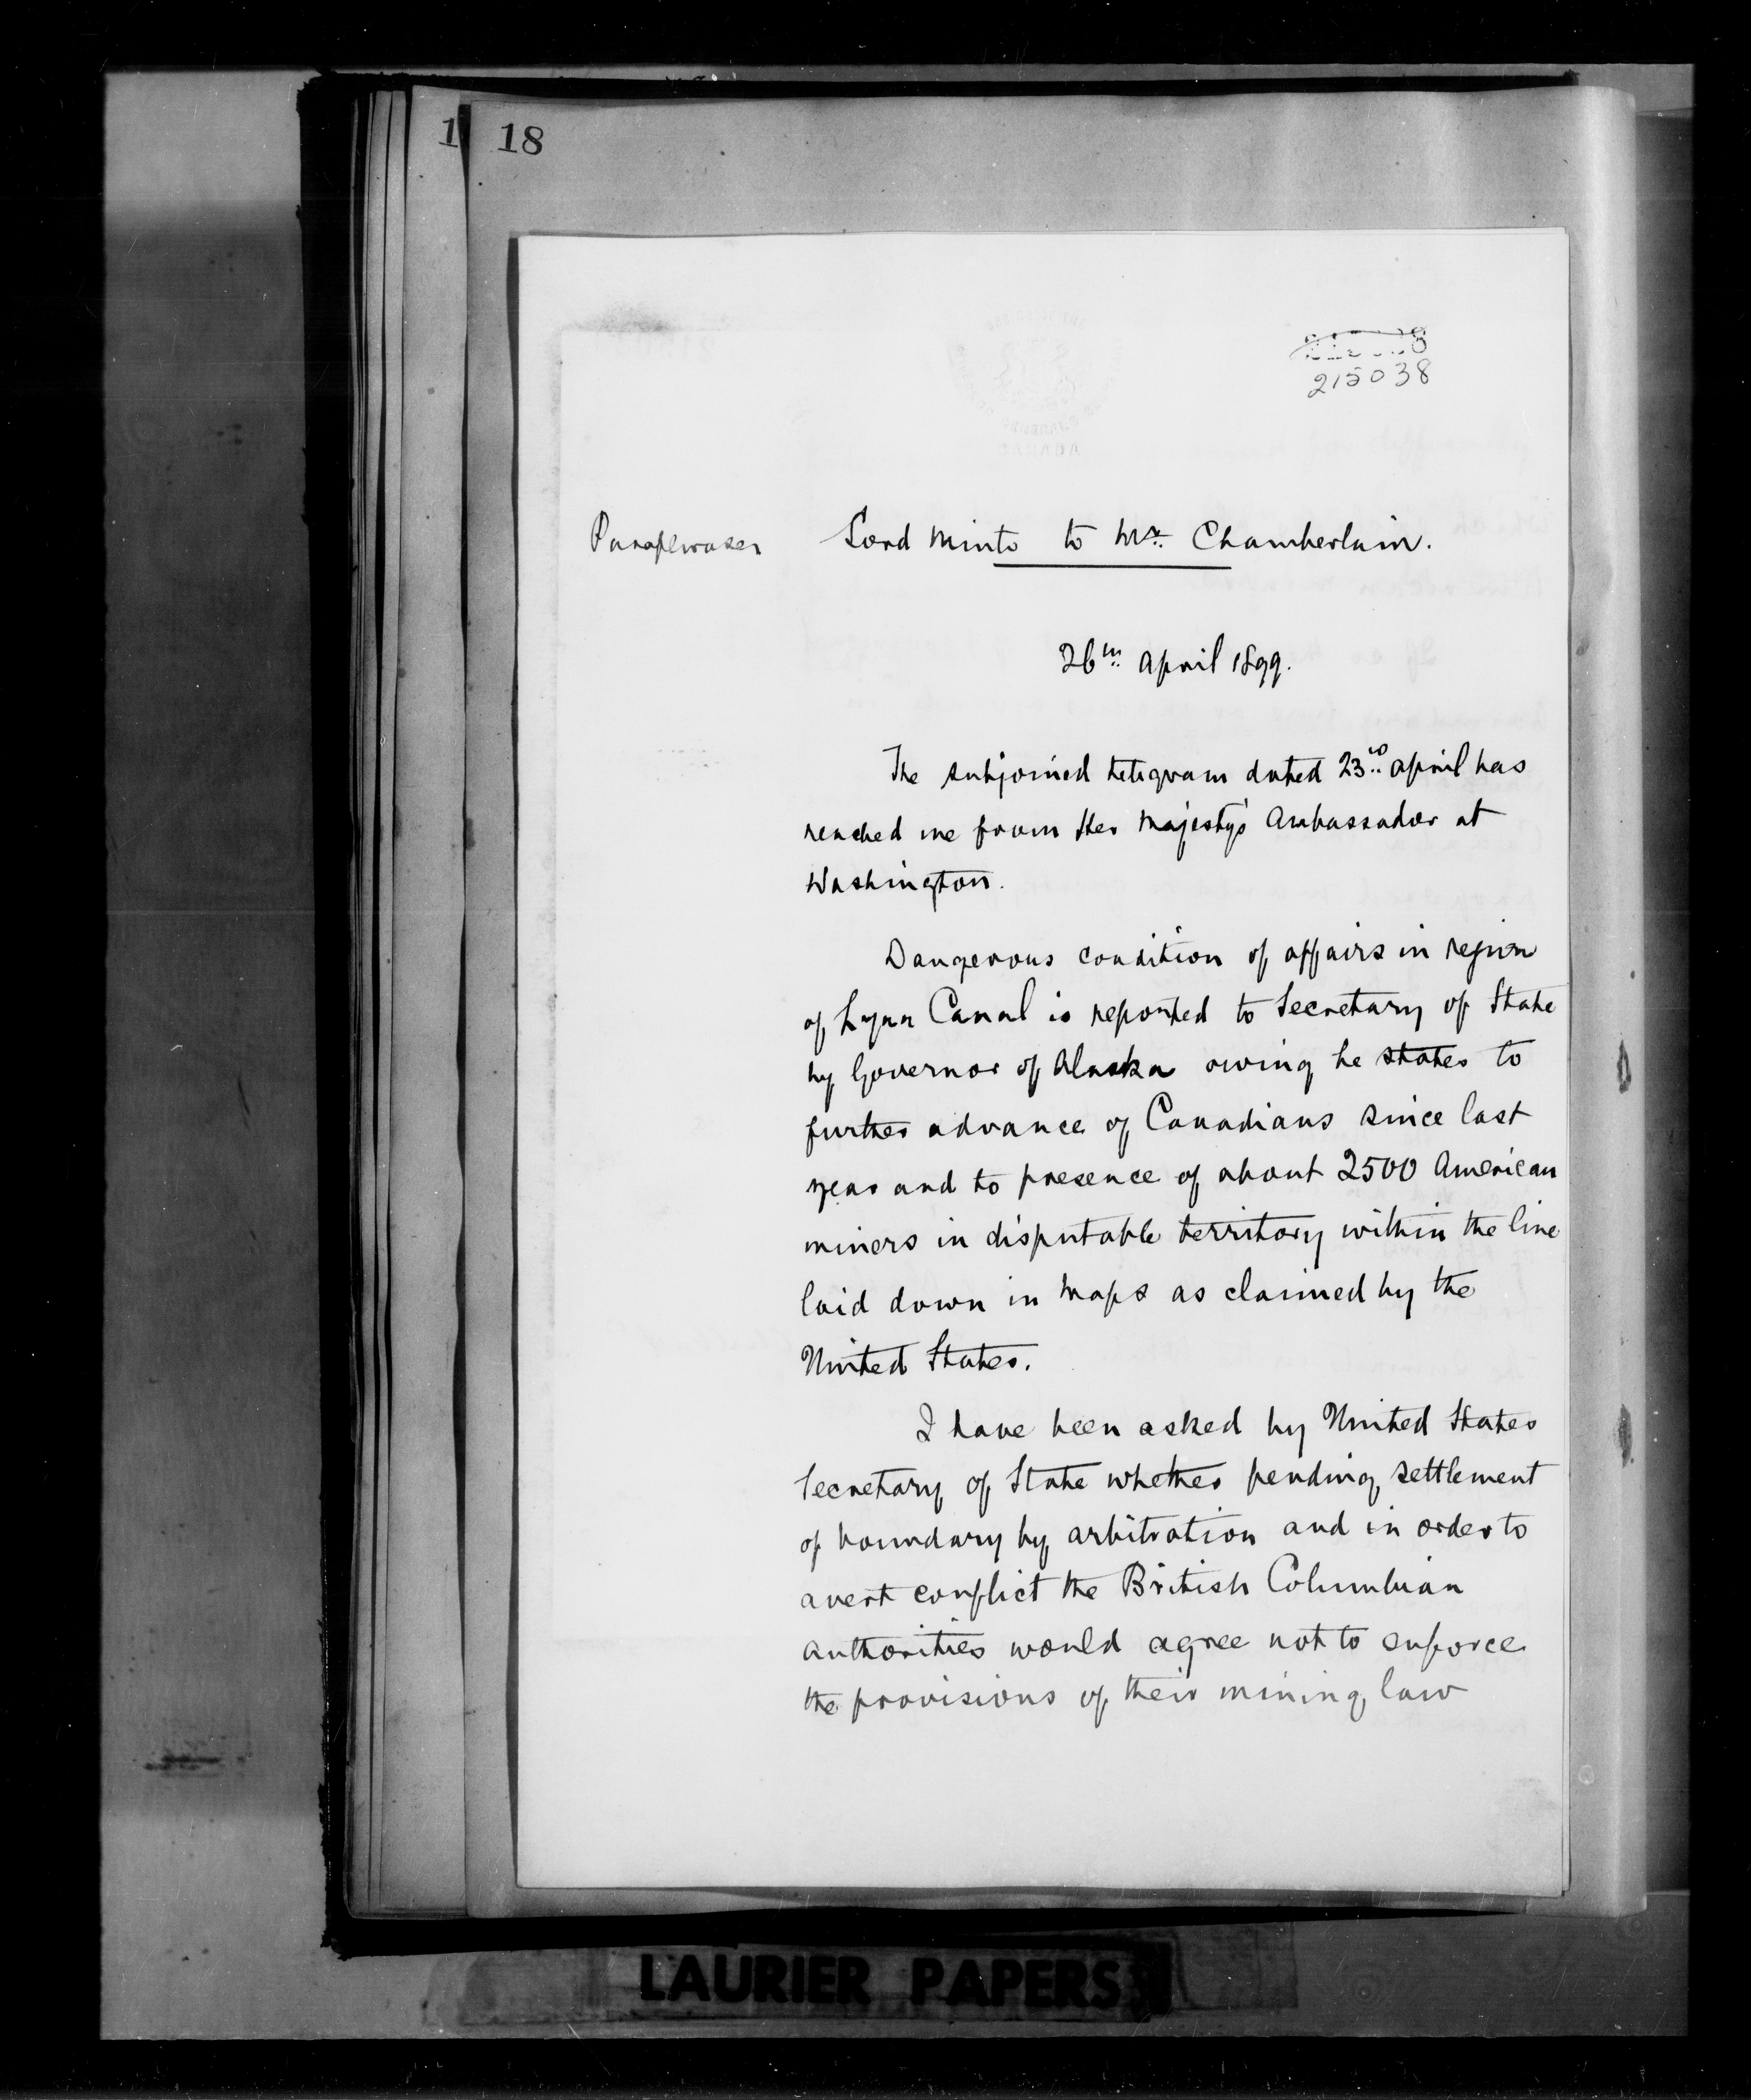 1 18
215038
Paraphrase Lord Minto to Mr. Chamberlain.
26th April 1899.
The subjoined telegram dated 23rd April has
reached me from Her Majesty's Ambassador at
Washington.
Dangerous condition of affairs in region
of Lynn Canal is reported to Secretary of State
by Governor of Alaska owing he states to
further advance of Canadians since last
year and to presence of about 2500 American
miners in disputable territory within the line
laid down in maps as claimed by the
United States.
I have been asked by United States
Secretary of State whether pending settlement
of boundary by arbitration and in order to
avert conflict the British Columbian
authorities would agree not to enforce
the provisions of their mining law
LAURIER PAPERS